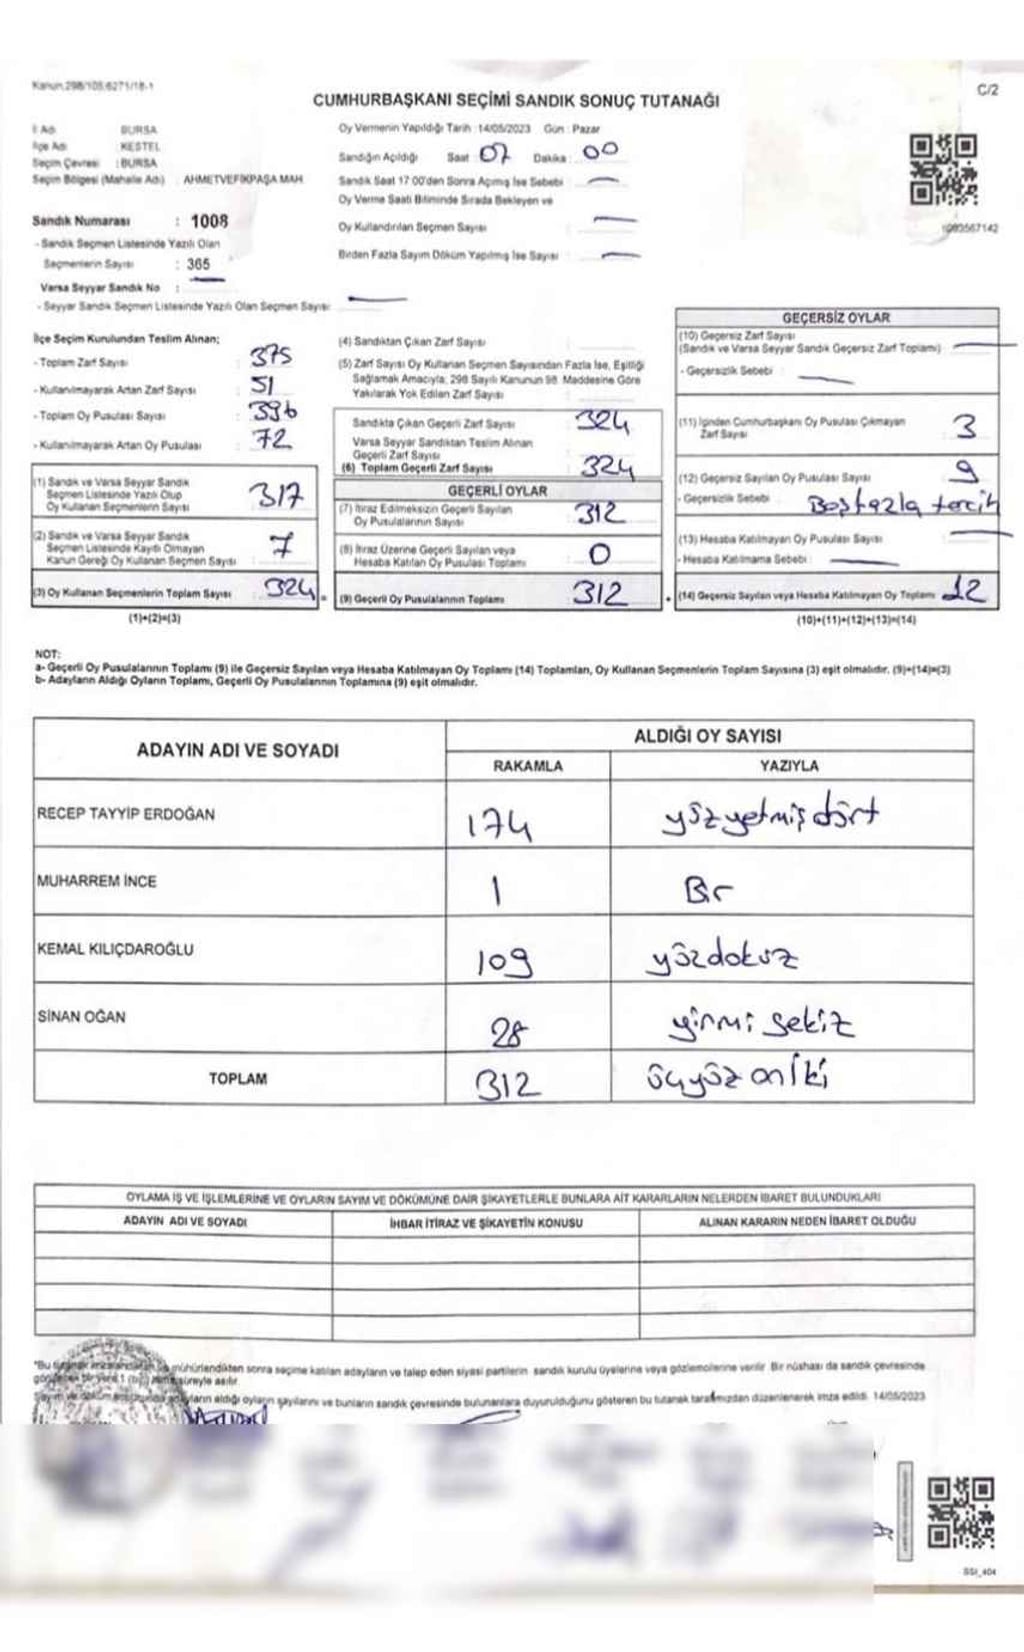 Kanun:298/105;6271/18-1
C/2
CUMHURBAŞKANI SEÇİMİ SANDIK SONUÇ TUTANAĞI
İl Adı : BURSA
İlçe Adı : KESTEL
Seçim Çevresi : BURSA
Seçim Bölgesi (Mahalle Adı) : AHMETVEFİKPAŞA MAH.
Sandık Numarası : 1008
- Sandık Seçmen Listesinde Yazılı Olan
Seçmenlerin Sayısı : 365
Varsa Seyyar Sandık No :
- Seyyar Sandık Seçmen Listesinde Yazılı Olan Seçmen Sayısı:
Oy Vermenin Yapıldığı Tarih : 14/05/2023 Gün : Pazar
Sandığın Açıldığı Saat 07 Dakika : 00
Sandık Saat 17:00'den Sonra Açılmış İse Sebebi :
Oy Verme Saati Bitiminde Sırada Bekleyen ve
Oy Kullandırılan Seçmen Sayısı :
Birden Fazla Sayım Döküm Yapılmış İse Sayısı :
İlçe Seçim Kurulundan Teslim Alınan;
- Toplam Zarf Sayısı : 375
- Kullanılmayarak Artan Zarf Sayısı : 51
- Toplam Oy Pusulası Sayısı : 396
- Kullanılmayarak Artan Oy Pusulası : 72
(1) Sandık ve Varsa Seyyar Sandık
Seçmen Listesinde Yazılı Olup
Oy Kullanan Seçmenlerin Sayısı : 317
(2) Sandık ve Varsa Seyyar Sandık
Seçmen Listesinde Kayıtlı Olmayan
Kanun Gereği Oy Kullanan Seçmen Sayısı : 7
(3) Oy Kullanan Seçmenlerin Toplam Sayısı : 324
(1)+(2)=(3)
(4) Sandıktan Çıkan Zarf Sayısı :
(5) Zarf Sayısı Oy Kullanan Seçmen Sayısından Fazla İse, Eşitliği
Sağlamak Amacıyla, 298 Sayılı Kanunun 98. Maddesine Göre
Yakılarak Yok Edilen Zarf Sayısı :
Sandıkta Çıkan Geçerli Zarf Sayısı : 324
Varsa Seyyar Sandıktan Teslim Alınan
Geçerli Zarf Sayısı :
(6) Toplam Geçerli Zarf Sayısı : 324
GEÇERLİ OYLAR
(7) İtiraz Edilmeksizin Geçerli Sayılan
Oy Pusulalarının Sayısı : 312
(8) İtiraz Üzerine Geçerli Sayılan veya
Hesaba Katılan Oy Pusulası Toplamı : 0
(9) Geçerli Oy Pusulalarının Toplamı : 312
GEÇERSİZ OYLAR
(10) Geçersiz Zarf Sayısı :
(Sandık ve Varsa Seyyar Sandık Geçersiz Zarf Toplamı)
- Geçersizlik Sebebi :
(11) İçinden Cumhurbaşkanı Oy Pusulası Çıkmayan
Zarf Sayısı : 3
(12) Geçersiz Sayılan Oy Pusulası Sayısı : 9
- Geçersizlik Sebebi : Boş fazla tercih
(13) Hesaba Katılmayan Oy Pusulası Sayısı :
- Hesaba Katılmama Sebebi :
(14) Geçersiz Sayılan veya Hesaba Katılmayan Oy Toplamı : 12
(10)+(11)+(12)+(13)=(14)
NOT:
a- Geçerli Oy Pusulalarının Toplamı (9) ile Geçersiz Sayılan veya Hesaba Katılmayan Oy Toplamı (14) Toplamları, Oy Kullanan Seçmenlerin Toplam Sayısına (3) eşit olmalıdır. (9)+(14)=(3)
b- Adayların Aldığı Oyların Toplamı, Geçerli Oy Pusulalarının Toplamına (9) eşit olmalıdır.
ADAYIN ADI VE SOYADI
ALDIĞI OY SAYISI
RAKAMLA YAZIYLA
RECEP TAYYİP ERDOĞAN 174 yüzyetmiş dört
MUHARREM İNCE 1 Bir
KEMAL KILIÇDAROĞLU 109 yüzdokuz
SİNAN OĞAN 28 yirmi sekiz
TOPLAM 312 üçyüz oniki
OYLAMA İŞ VE İŞLEMLERİNE VE OYLARIN SAYIM VE DÖKÜMÜNE DAİR ŞİKAYETLERLE BUNLARA AİT KARARLARIN NELERDEN İBARET BULUNDUKLARI
ADAYIN ADI VE SOYADI İHBAR İTİRAZ VE ŞİKAYETİN KONUSU ALINAN KARARIN NEDEN İBARET OLDUĞU
mühürlendikten sonra seçime katılan adayların ve talep eden siyasi partilerin sandık kurulu üyelerine veya gözlemcilerine verilir. Bir nüshası da sandık çevresinde
süreyle asılır.
aldığı oyların sayılarını ve bunların sandık çevresinde bulunanlara duyurulduğunu gösteren bu tutanak tarafımızdan düzenlenerek imza edildi. 14/05/2023
SSI_404